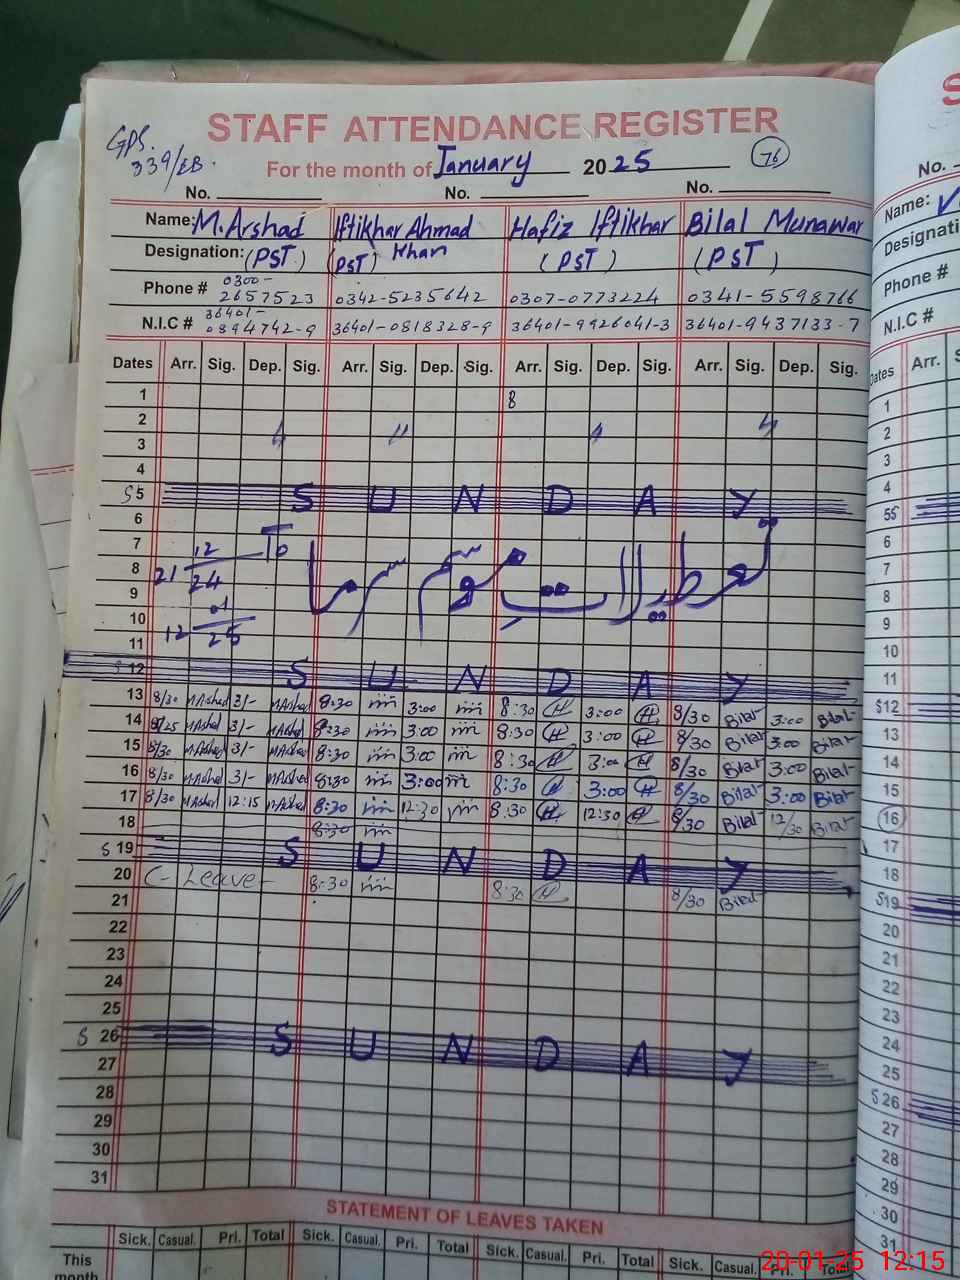 GPS.
339/EB.
STAFF ATTENDANCE REGISTER
For the month of January 2025
76
No. No. No.
Name: M.Arshad Iftikhar Ahmad Khan Hafiz Iftikhar Bilal Munawar
Designation: (PST) (PST) (PST) (PST)
Phone # 0300-2657523 0342-5235642 0307-0773224 0341-5598766
N.I.C # 36401-0894742-9 36401-0818328-9 36401-9926041-3 36401-9437133-7
Dates Arr. Sig. Dep. Sig. Arr. Sig. Dep. Sig. Arr. Sig. Dep. Sig. Arr. Sig. Dep. Sig.
1 8
2
3
4
S 5 S U N D A Y
6
7
8
9
10
11
21 12/24 To 12 01/25
تعطیلات موسم سرما
S 12 S U N D A Y
13 8/30 MArshad 3/- MArshad 8:30 3:00 8:30 3:00 8/30 Bilal 3:00 Bilal
14 8/25 MArshad 3/- MArshad 8:30 3:00 8:30 3:00 8/30 Bilal 3:00 Bilal
15 8/30 MArshad 3/- MArshad 8:30 3:00 8:30 3:00 8/30 Bilal 3:00 Bilal
16 8/30 MArshad 3/- MArshad 8:30 3:00 8:30 3:00 8/30 Bilal 3:00 Bilal
17 8/30 MArshad 12:15 MArshad 8:30 12:30 8:30 12:30 8/30 Bilal 12/30 Bilal
18 8:30
S 19 S U N D A Y
20 C-Leave 8:30 8:30 8/30 Bilal
21
22
23
24
25
S 26 S U N D A Y
27
28
29
30
31
STATEMENT OF LEAVES TAKEN
Sick. Casual. Pri. Total Sick. Casual. Pri. Total Sick. Casual. Pri. Total Sick. Casual. Pri. Total
This month
No.
Name:
Designati
Phone #
N.I.C #
Dates Arr.
1
2
3
4
5S
6
7
8
9
10
11
S12
13
14
15
16
17
18
S19
20
21
22
23
24
25
S 26
27
28
29
30
31
20-01-25 12:15